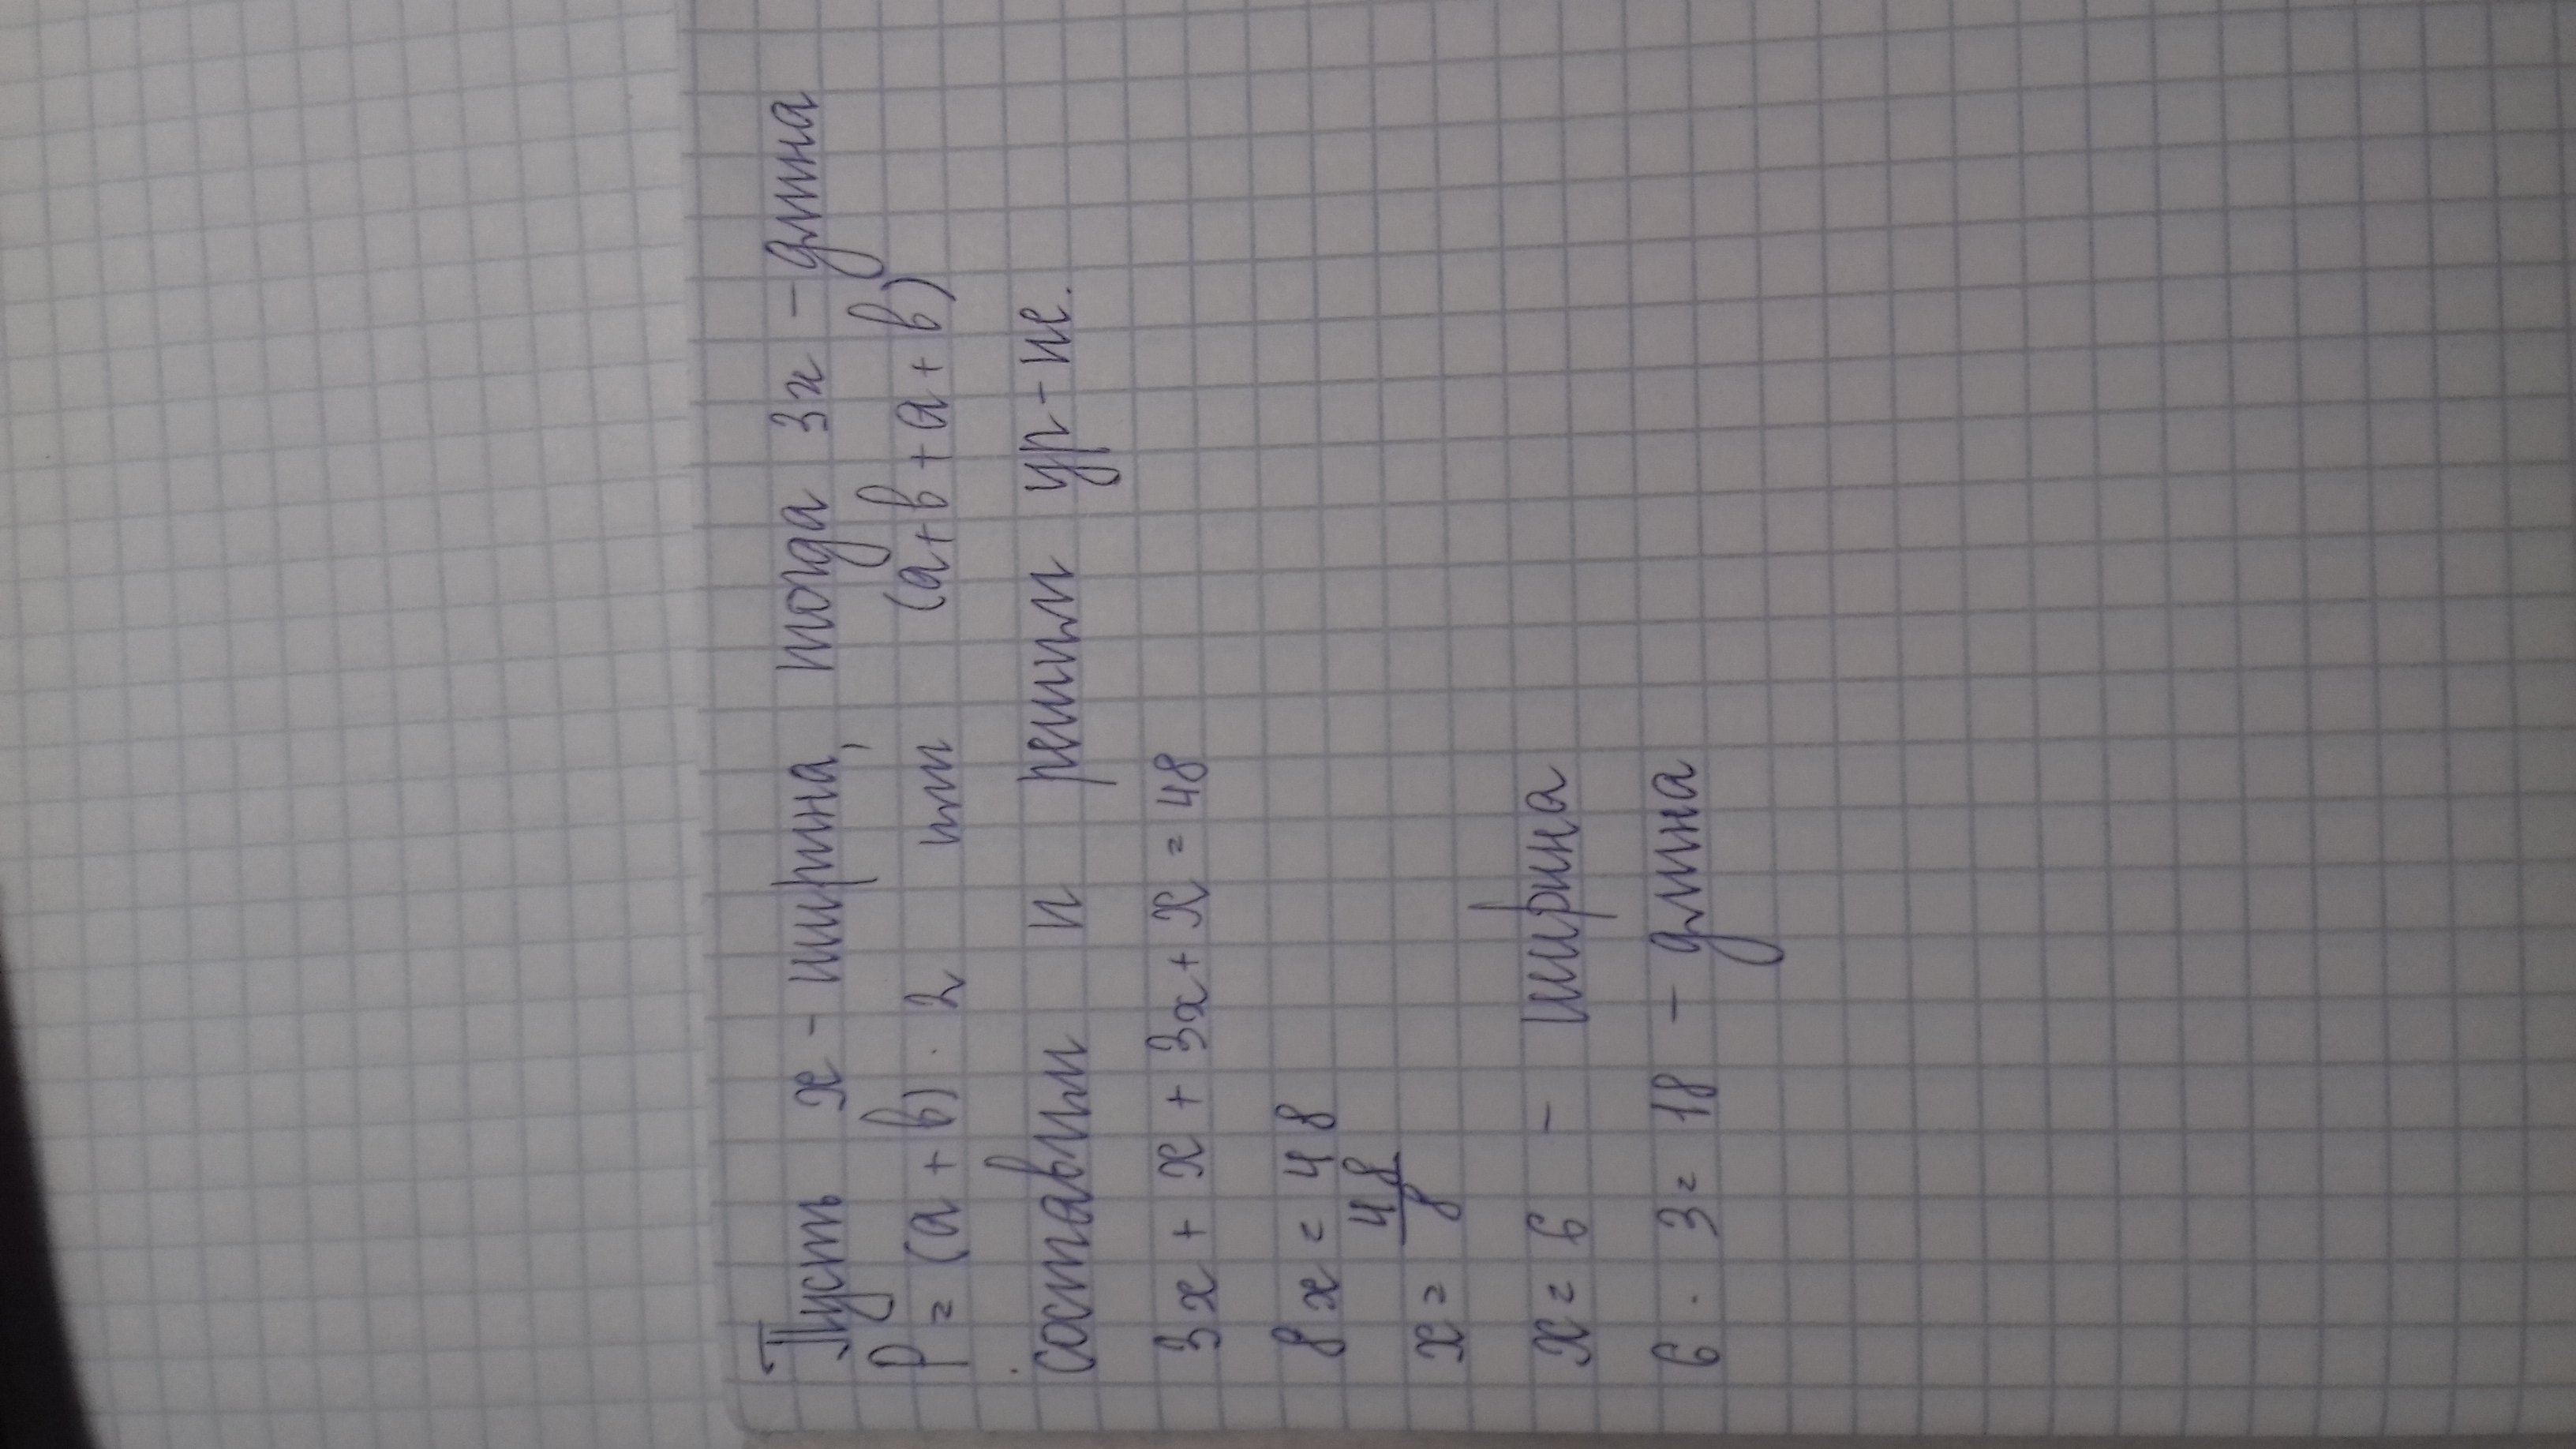 Пуст х - ширина, тогда 3х - длина
P = (a + b) · 2 или (a+b+a+b)
Составим и решим ур-ие.
3х + х + 3х + х = 48
8х = 48
х = 48/8
х = 6 - ширина
6 · 3 = 18 - длина